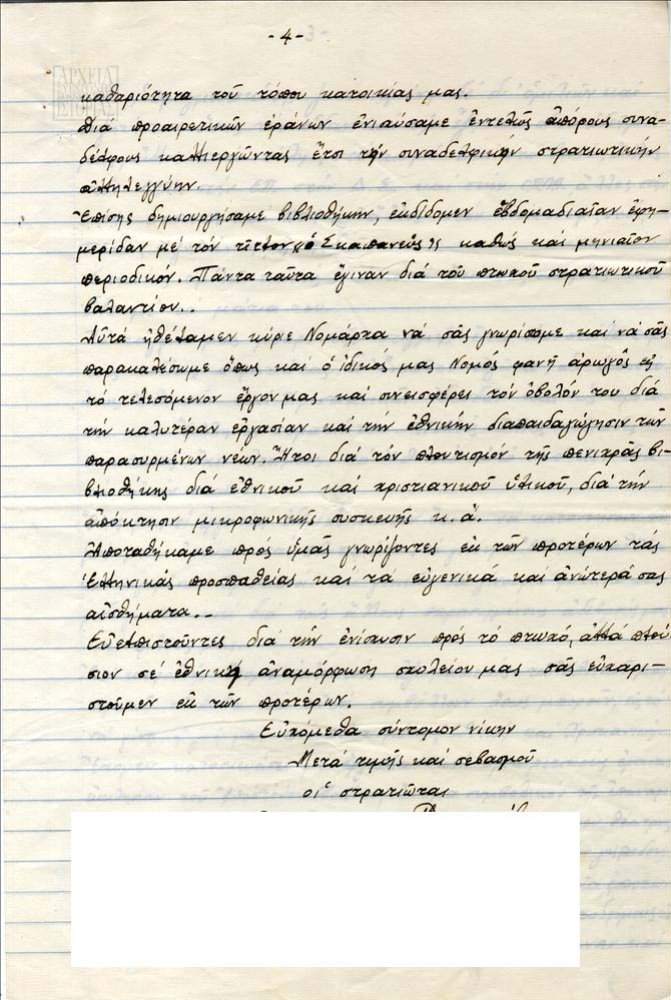 -4-
ΑΡΧΕΙΑ
ΙΣΤΟΡΙΑΣ
καθαριότητα τοῦ τόπου κατοικίας μας.
Διά προαιρετικῶν ἐράνων ἐνισύσαμε ἐντελῶς ἀπόρους συνα-
δέλφους καλλιεργῶντας ἔτσι τήν συναδελφικήν στρατιωτικήν
ἀλληλεγγύην.
Ἐπίσης δημιουργήσαμε βιβλιοθήκην, ἐκδίδομεν ἑβδομαδιαῖαν ἐφη-
μερίδαν μέ τόν τίτλον «ὁ Σκαπανεύς» καθώς καί μηνιαῖον
περιοδικόν. Πάντα ταῦτα ἔγιναν διά τοῦ πτωχοῦ στρατιωτικοῦ
βαλαντίου..
Αὐτά ἠθέλαμεν κύριε Νομάρχα νά σᾶς γνωρίσωμε καί νά σᾶς
παρακαλέσωμε ὅπως καί ὁ ἰδικός μας Νομός φανῆ ἀρωγός εἰς
τό τελεσόμενον ἔργον μας καί συνεισφέρει τόν ὀβολόν του διά
τήν καλυτέραν ἐργασίαν καί τήν ἐθνικήν διαπαιδαγώγησιν των
παρασυρμένων νέων. Ἤτοι διά τόν πλουτισμόν τῆς πενιχρᾶς βι-
βλιοθήκης διά ἐθνικοῦ καί χριστιανικοῦ ὑλικοῦ, διά τήν
ἀπόκτησιν μικροφωνικῆς συσκευῆς κ.ἀ.
Ἀποταθήκαμε πρός ὑμᾶς γνωρίζοντες ἐκ τῶν προτέρων τάς
Ἑλληνικάς προσπαθείας καί τά εὐγενικά καί ἀνώτερά σας
αἰσθήματα..
Εὐελπιστοῦντες διά τήν ἐνίσχυσιν πρός τό πτωχό, ἀλλά πλού
σιον σέ ἐθνική ἀναμόρφωση σχολείον μας σᾶς εὐχαρι-
στοῦμεν ἐκ τῶν προτέρων.
Εὐχόμεθα σύντομον νίκην
Μετά τιμῆς καί σεβασμοῦ
οἱ στρατιῶται